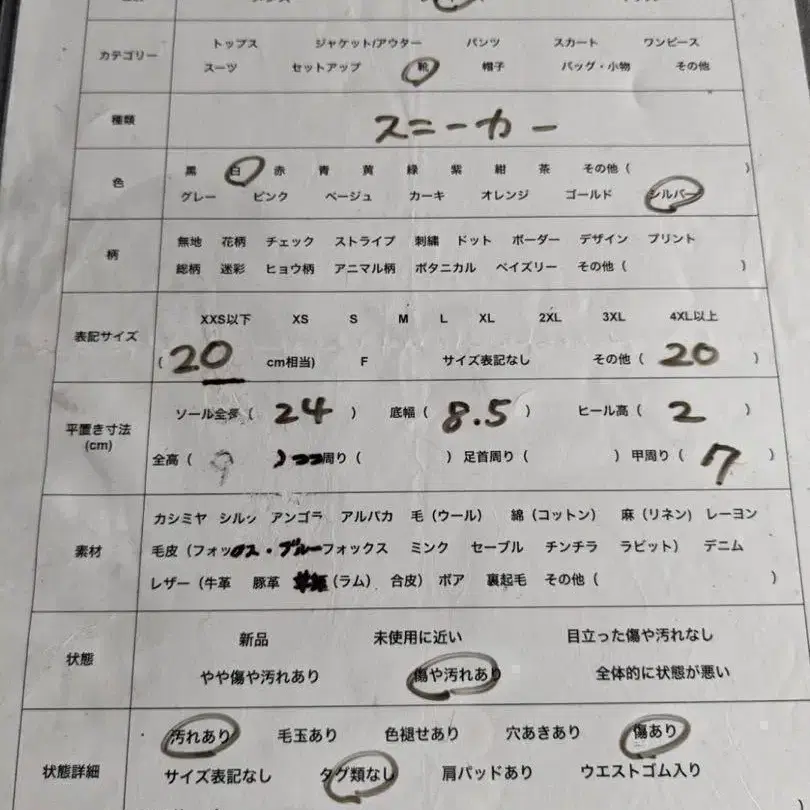 カテゴリー
トップス ジャケット/アウター パンツ スカート ワンピース
スーツ セットアップ 靴 帽子 バッグ・小物 その他
種類
スニーカー
色
黒 白 赤 青 黄 緑 紫 紺 茶 その他 ( )
グレー ピンク ベージュ カーキ オレンジ ゴールド シルバー
柄
無地 花柄 チェック ストライプ 刺繍 ドット ボーダー デザイン プリント
総柄 迷彩 ヒョウ柄 アニマル柄 ボタニカル ペイズリー その他 ( )
表記サイズ
XXS以下 XS S M L XL 2XL 3XL 4XL以上
( 20 cm相当) F サイズ表記なし その他 ( 20 )
平置き寸法
(cm)
ソール全長 ( 24 ) 底幅 ( 8.5 ) ヒール高 ( 2 )
全高 ( 9 ) 周り ( ) 足首周り ( ) 甲周り ( 7 )
素材
カシミヤ シルク アンゴラ アルパカ 毛 (ウール) 綿 (コットン) 麻 (リネン) レーヨン
毛皮 (フォックス・ブルーフォックス ミンク セーブル チンチラ ラビット) デニム
レザー (牛革 豚革 (ラム) 合皮) ボア 裏起毛 その他 ( )
状態
新品 未使用に近い 目立った傷や汚れなし
やや傷や汚れあり 傷や汚れあり 全体的に状態が悪い
状態詳細
汚れあり 毛玉あり 色褪せあり 穴あきあり 傷あり
サイズ表記なし タグ類なし 肩パッドあり ウエストゴム入り